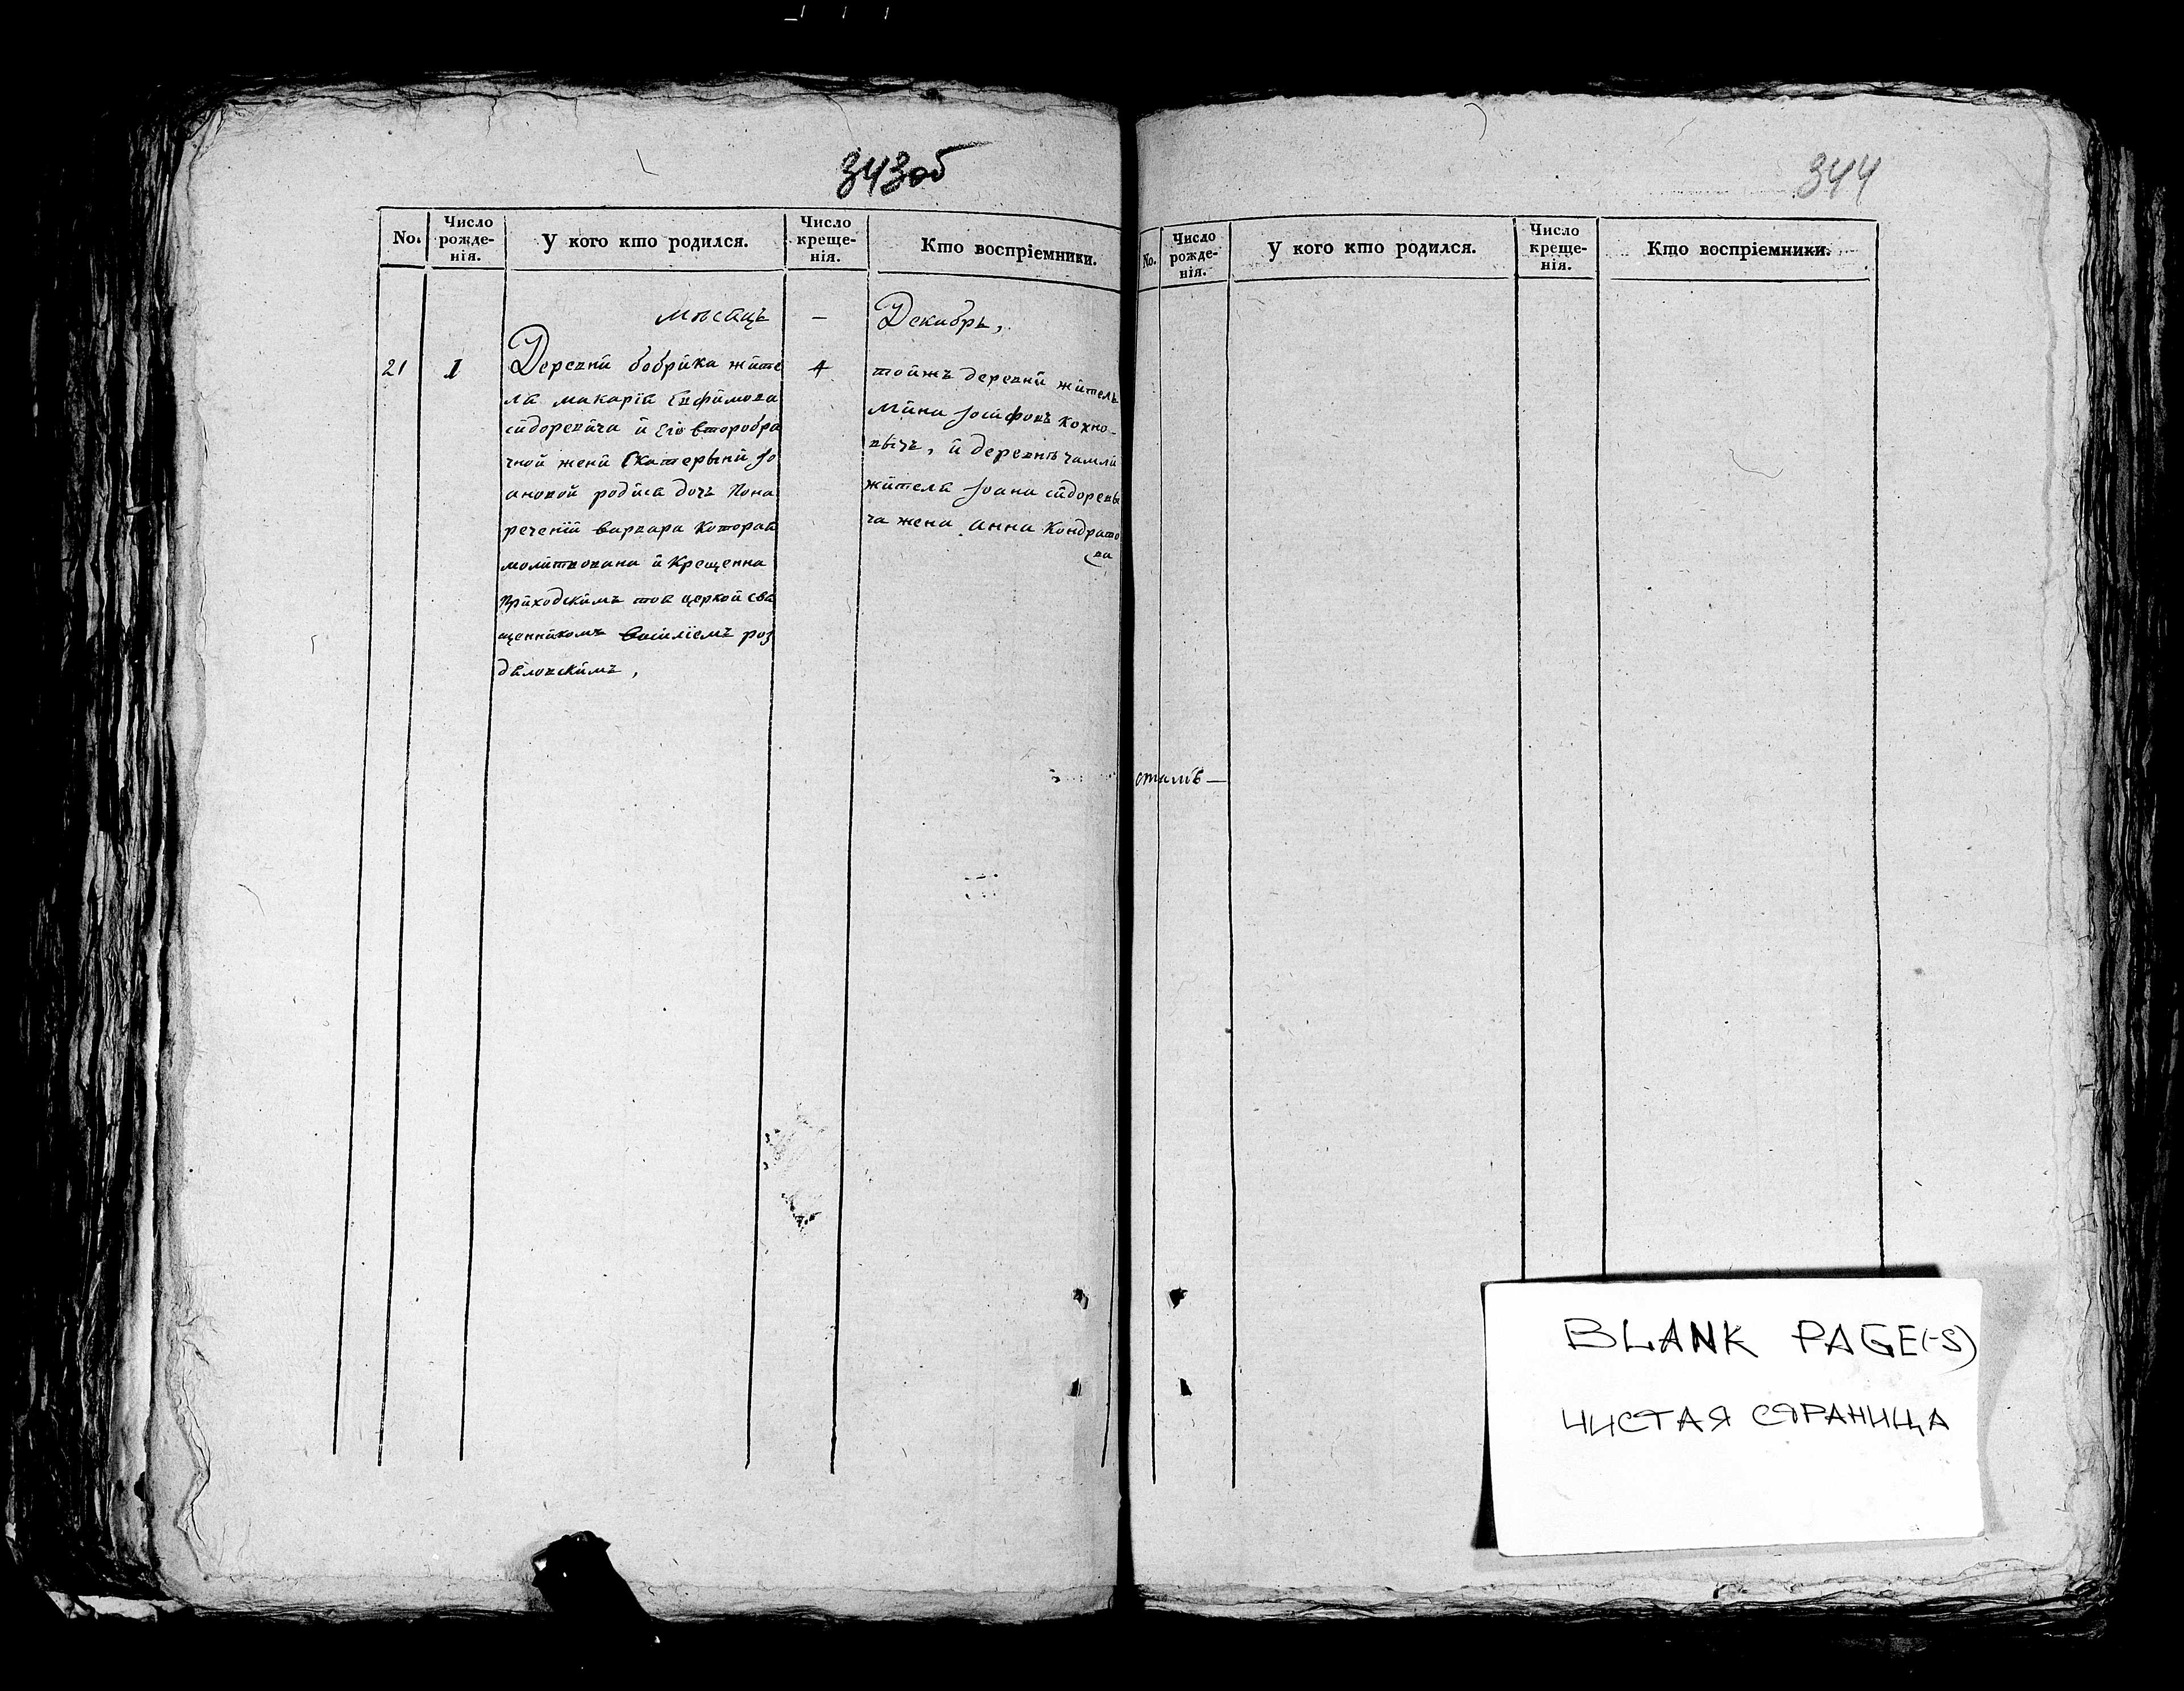 343об
No.
Число рожде- нія.
У кого кто родился.
Число креще- нія.
Кто воспріемники.
Мѣсяцъ — Декабрь,
21 1
Деревни бобрика жите
ля макарія Евфимова
сидоревича и Его второбра
чной жени Екатерыни Іо
ановой родися дочь Пона
реченій варвара Которая
молитвована и Крещенна
Приходскимъ тоя церкви свя
щенникомъ василіемъ роз
дяловскимъ,
4
тойжъ деревни житель
Мина Іосифовъ Кохно-
вычъ, и деревнѣ чамли
жителя Іоана сидоревы
ча жена анна Кондрато
ва
344
No.
Число рожде- нія.
У кого кто родился.
Число креще- нія.
Кто воспріемники.
BLANK PAGE(-S)
ЧИСТАЯ СТРАНИЦА